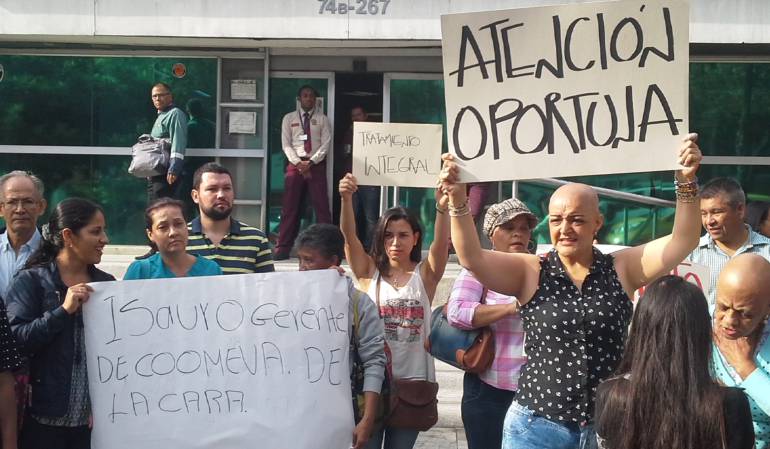 74B-267
ATENCIÓN
OPORTUNA
TRATAMIENTO
INTEGRAL
ISAURO GERENTE
DE COOMEVA. DE
LA CARA.